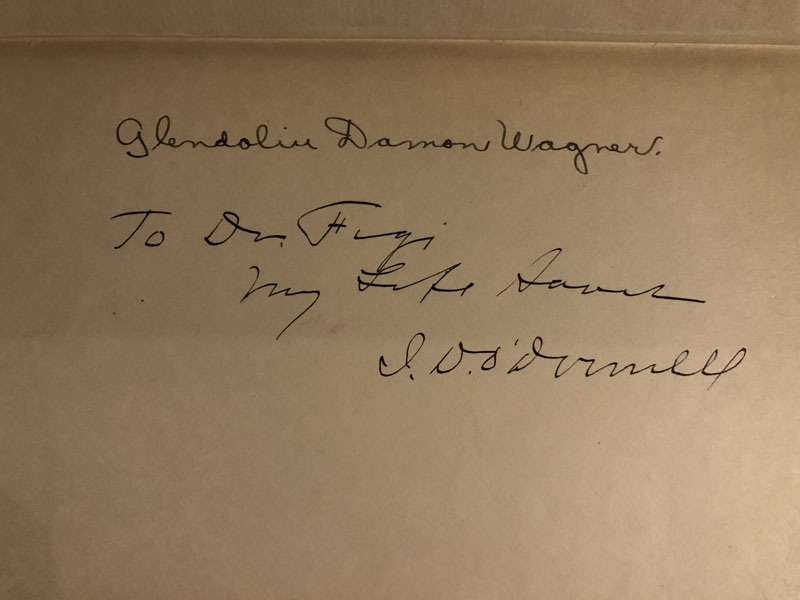 Glendolin Damon Wagner.
To Dr. Figi
My Life Saver
I. D. O'Donnell